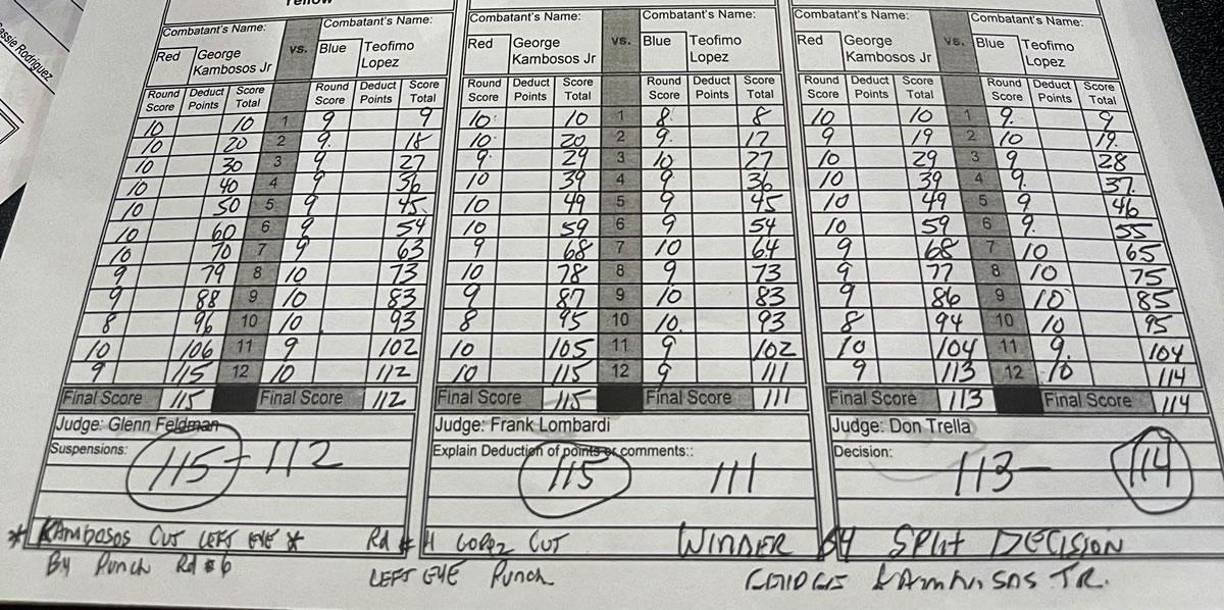 Yellow
assie Rodriguez
Combatant's Name: Combatant's Name: Combatant's Name: Combatant's Name: Combatant's Name: Combatant's Name:
Red George Kambosos Jr vs. Blue Teofimo Lopez Red George Kambosos Jr vs. Blue Teofimo Lopez Red George Kambosos Jr vs. Blue Teofimo Lopez
Round Score Deduct Points Score Total Round Score Deduct Points Score Total Round Score Deduct Points Score Total Round Score Deduct Points Score Total Round Score Deduct Points Score Total Round Score Deduct Points Score Total
10 10 1 9 9 10 10 1 8 8 10 10 1 9 9
10 20 2 9 18 10 20 2 9 17 9 19 2 10 19
10 30 3 9 27 9 29 3 10 27 10 29 3 9 28
10 40 4 9 36 10 39 4 9 36 10 39 4 9 37
10 50 5 9 45 10 49 5 9 45 10 49 5 9 46
10 60 6 9 54 10 59 6 9 54 10 59 6 9 55
10 70 7 9 63 9 68 7 10 64 9 68 7 10 65
9 79 8 10 73 10 78 8 9 73 9 77 8 10 75
9 88 9 10 83 9 87 9 10 83 9 86 9 10 85
8 96 10 10 93 8 95 10 10 93 8 94 10 10 95
10 106 11 9 102 10 105 11 9 102 10 104 11 9 104
9 115 12 10 112 10 115 12 9 111 9 113 12 10 114
Final Score 115 Final Score 112 Final Score 115 Final Score 111 Final Score 113 Final Score 114
Judge: Glenn Feldman Judge: Frank Lombardi Judge: Don Trella
Suspensions: Explain Deduction of points or comments:: Decision:
115 - 112 115 111 113 - 114
* KAmbosos CUT LEFT EYE * Rd # 4 LOPEZ CUT WINNER BY SPLIT DECISION
By Punch Rd #6 LEFT EYE Punch KAmbosos JR.